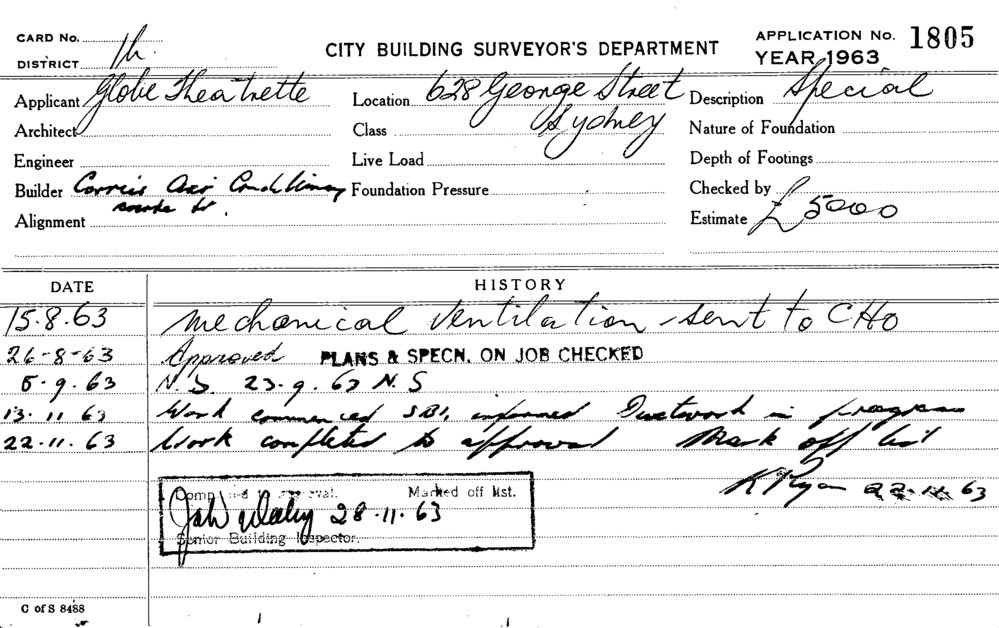 CARD No.
DISTRICT 1h.
CITY BUILDING SURVEYOR'S DEPARTMENT
APPLICATION No. 1805
YEAR 1963
Applicant Globe Theatrette
Location 628 George Street
Sydney
Description Special
Architect
Class
Nature of Foundation
Engineer
Live Load
Depth of Footings
Builder Air Conditioning
Foundation Pressure
Checked by
Alignment
Estimate £5000
DATE HISTORY
15.8.63 Mechanical Ventilation - sent to CHO
26-8-63 Approved PLANS & SPECN. ON JOB CHECKED
5.9.63 N.S. 23.9.63 N.S
13.11.63 Work commenced SBI, informed Ductwork in progress
22.11.63 Work completed to approval Mark off list
K Ryan 22.11.63
Marked off list.
28.11.63
Senior Building Inspector.
C of S 8488